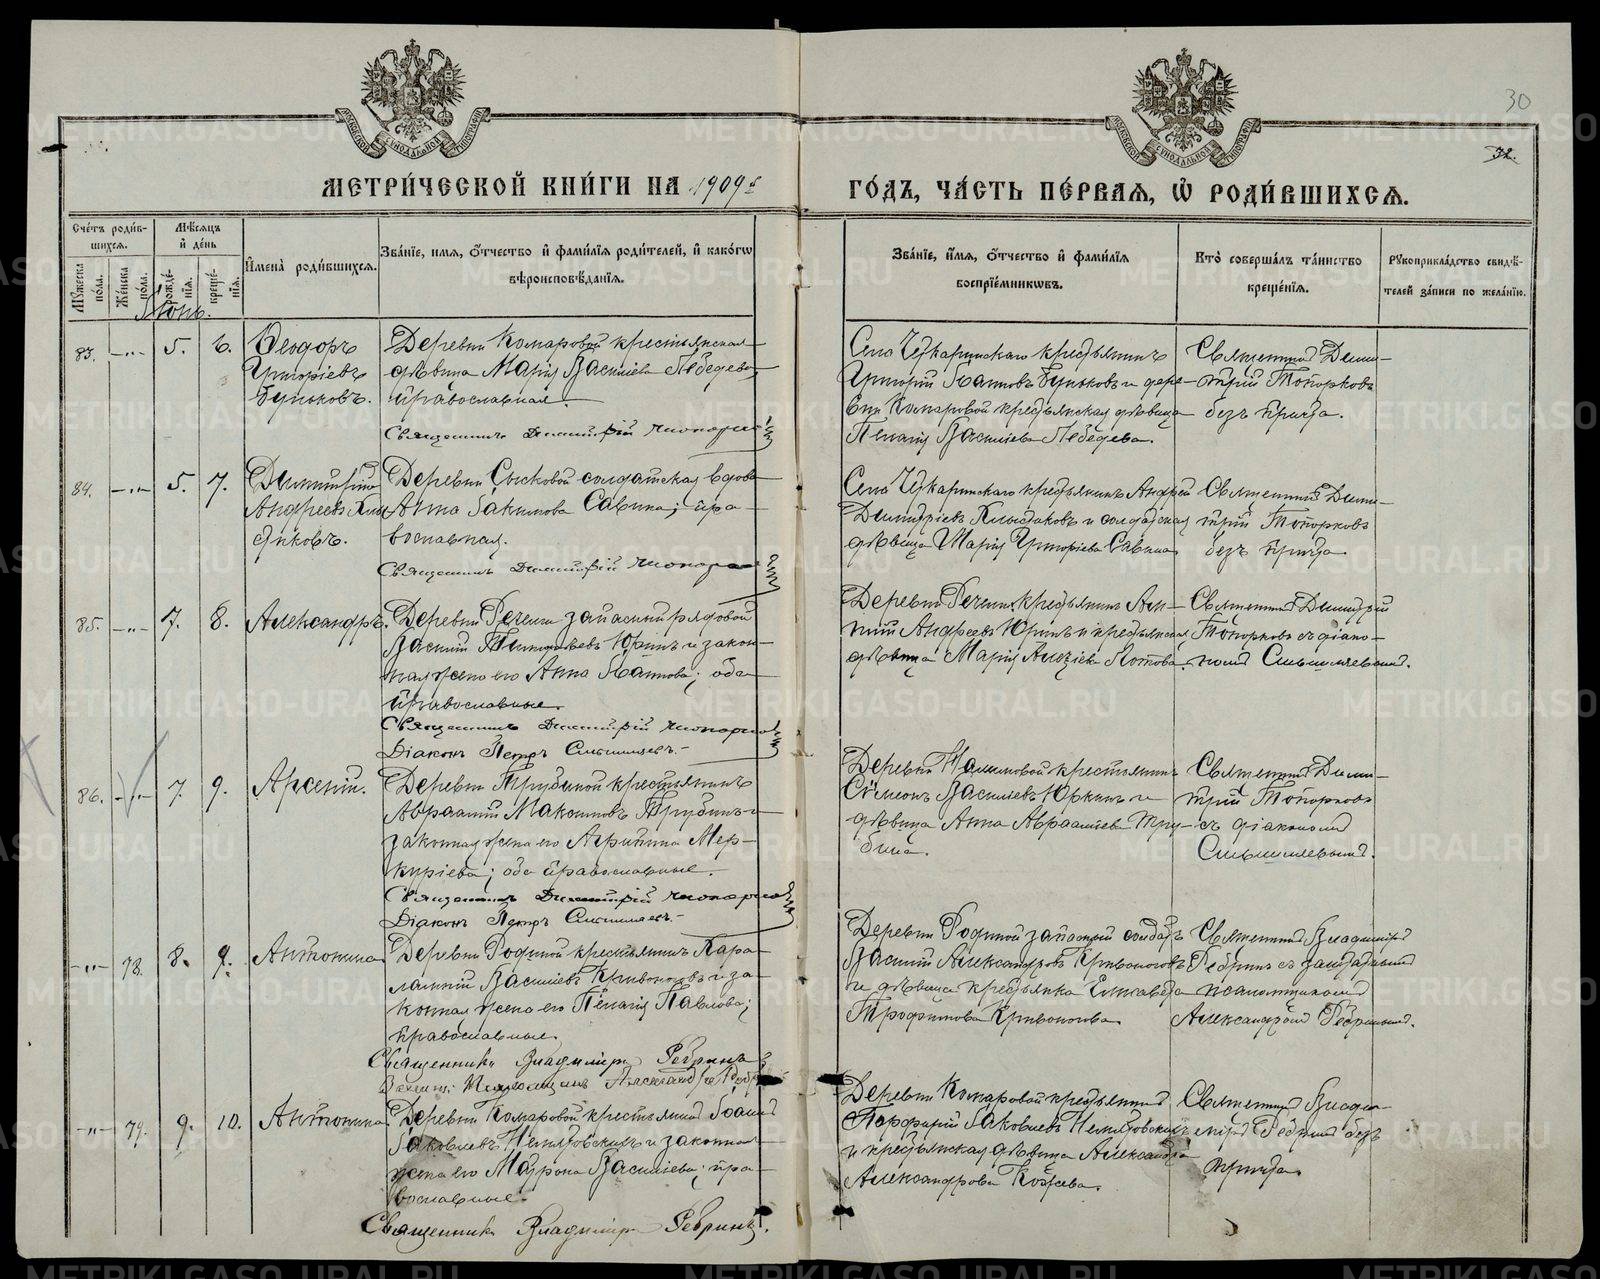 30
32.
МЕТРИ́ЧЕСКОЙ КНИ́ГИ НА 1909 г.
ГО́ДЪ, ЧА́СТЬ ПЕ́РВАЯ, Ѡ РОДИ́ВШИХСЯ.
Сче́тъ роди́в-
шихся.
Мꙋжеска по́ла.
Же́нска по́ла.
Мѣ́сяцъ и де́нь
рожде́-
нія.
креще́-
нія.
Имена̀ роди́вшихся.
Зва́ніе, имя, о́тчество и фами́лія роди́телей, и како́гѡ
вѣроисповѣ́данія.
Зва́ніе, и́мя, о́тчество и фами́лія
воспріе́мникѡвъ.
Кто̀ соверша́лъ та́инство
креще́нія.
Рꙋкоприкла́дство свидѣ́-
телей за́писи по жела́нію.
Іюнь.
83. –"– 5. 6.
Ѳеодоръ
Григоріевъ
Буньковъ.
Деревни Комаровой крестьянская
дѣвица Марія Васильева Лебедева,
православная.
Священникъ Димитрій Топорков
Села Чкаринскаго крестьянинъ
Григорій Іоанновъ Буньковъ и дере-
вни Комаровой крестьянская дѣвица
Пелагія Васильева Лебедева.
Священникъ Дими-
трій Топорковъ
безъ причта.
84. –"– 5. 7.
Димитрій
Андреевъ
Деревни Сысковой солдатская вдова
Анна Іакимова Савина; пра-
вославная.
Священникъ Димитрій Топорков
Села Чкаринскаго крестьянинъ Андрей
Димитріевъ и солдатская
дѣвица Марія Григоріева Савина
Священникъ Дими-
трій Топорковъ
безъ причта
85. –"– 7. 8.
Александръ.
Деревни Речкиной запасный рядовой
Василій Юринъ и закон-
ная жена его Анна Іоаннова; оба
православные.
Священникъ Димитрій Топорков
Діаконъ Петръ Смышляевъ.
Деревни крестьянинъ
Андреевъ Юринъ и крестьянская
дѣвица Марія
Священникъ Димитрій
Топорковъ съ діако-
номъ Смышляевымъ.
86. –"– 7. 9.
Арсеній.
Деревни Трубиной крестьянинъ
Авраамій Максимовъ Трубинъ и
законная жена его Агрипина Мер-
куріева; оба православные.
Священникъ Димитрій Топорков
Діаконъ Петръ Смышляевъ.
Деревни Налимовой крестьянинъ
Симеонъ Васильевъ Юркинъ и
дѣвица Анна Авраамiева Тру-
бина.
Священникъ Дими-
трій Топорковъ
съ діакономъ
Смышляевымъ.
–"– 78. 8. 9.
Антонина
Деревни Родиной крестьянинъ Хара-
лампій Васильевъ Кривоноговъ и за-
конная жена его Пелагія Павлова;
православные.
Священникъ Владиміръ Ребринъ
Деревни Родиной запасный солдатъ
Василій Александровъ Кривоноговъ
и дѣвица крестьянка Елисавета
Трофимова Кривоногова.
Священникъ Владиміръ
Ребринъ съ заштатнымъ
псаломщикомъ
Александромъ Ребринымъ.
–"– 79. 9. 10.
Антонина
Деревни Комаровой крестьянинъ Іоаннъ
Іаковлевъ и законная
жена его Матрона Васильева; пра-
вославные.
Священникъ Владиміръ Ребринъ.
Деревни Комаровой крестьянинъ
Порфирій Іаковлевъ
и крестьянская дѣвица Александра
Александрова
Священникъ Влади-
міръ Ребринъ безъ
причта.
METRIKI.GASO-URAL.RU